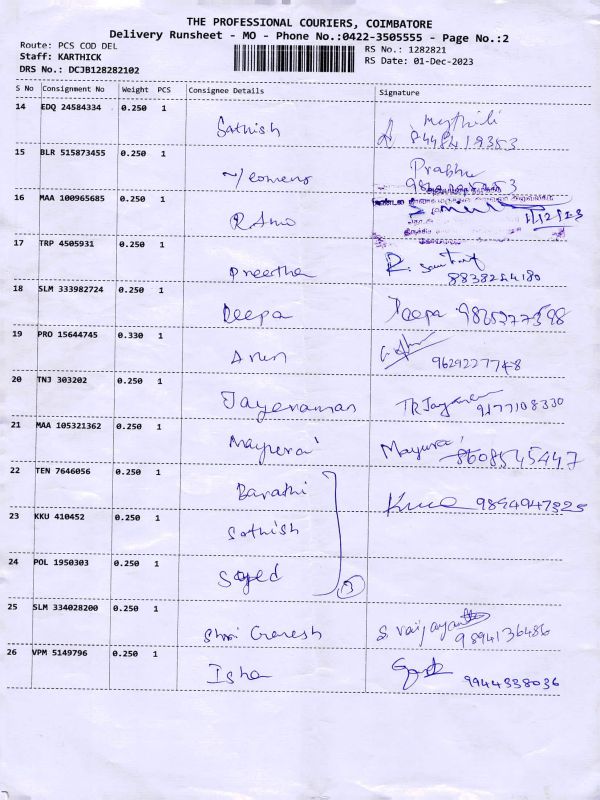 THE PROFESSIONAL COURIERS, COIMBATORE
Delivery Runsheet - MO - Phone No.:0422-3505555 - Page No.:2
Route: PCS COD DEL
RS No.: 1282821
Staff: KARTHICK
RS Date: 01-Dec-2023
DRS No.: DCJB128282102
S No Consignment No Weight PCS Consignee Details Signature
14 EDQ 24584334 0.250 1
Sathish Mythili
8448419353
15 BLR 515873455 0.250 1
Prabhu
16 MAA 100965685 0.250 1
1/12/23
17 TRP 4505931 0.250 1
Preetha R.
8838254180
18 SLM 333982724 0.250 1
Deepa Deepa 9865277598
19 PRO 15644745 0.330 1
Arun
9629227748
20 TNJ 303202 0.250 1
Jayeraman TR Jayaram 9177108330
21 MAA 105321362 0.250 1
Mayurai
8608545447
22 TEN 7646056 0.250 1
Barathi
9894947325
23 KKU 410452 0.250 1
Sathish
24 POL 1950303 0.250 1
Sayed
25 SLM 334028200 0.250 1
Shri Ganesh S. Vaijayanthi
9894136486
26 VPM 5149796 0.250 1
Isha
9944338036